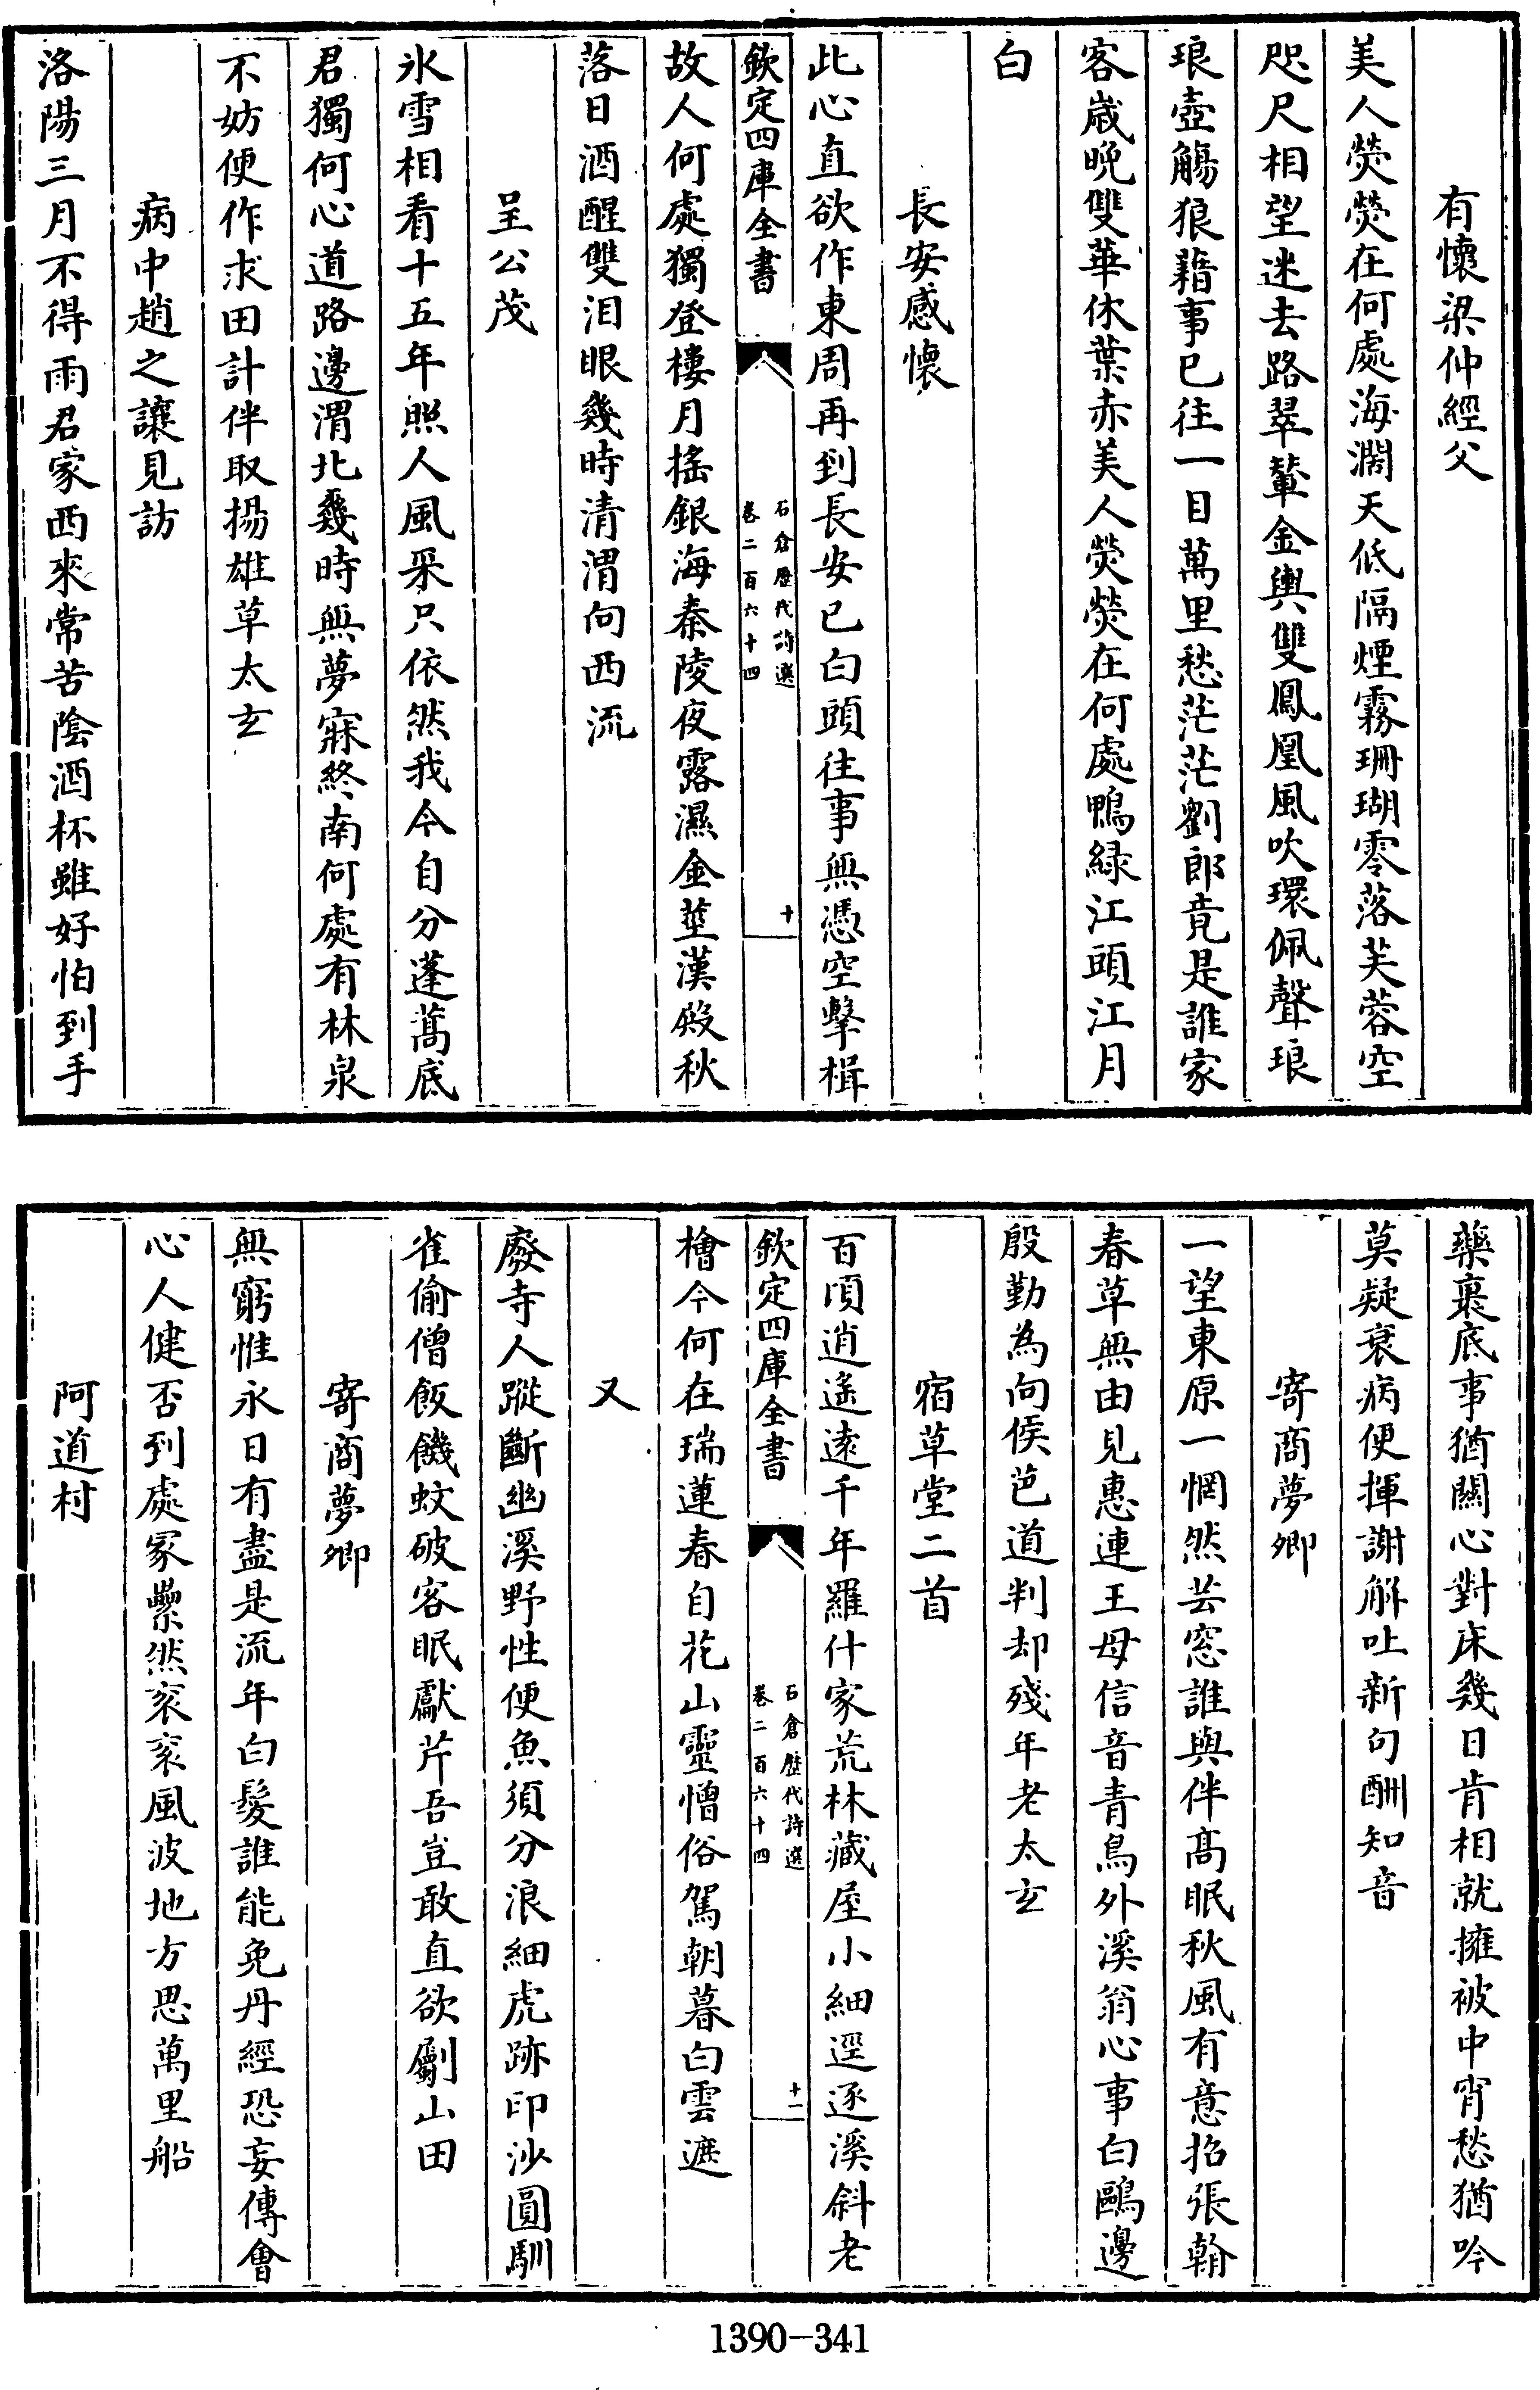 有懷梁仲經父
美人熒熒在何處海濶天低隔煙霧珊瑚零落芙蓉空
咫尺相望迷去路翠輦金輿雙鳳凰風吹環佩聲琅
琅壺觴狼藉事已往一目萬里愁茫茫劉郎竟是誰家
客歲晚雙華休葉赤美人熒熒在何處鴨緑江頭江月
白
長安感懷
此心直欲作東周再到長安已白頭往事無憑空擊楫
欽定四庫全書
石倉歷代詩選
卷二百六十四
十
故人何處獨登樓月搖銀海秦陵夜露濕金莖漢殿秋
落日酒醒雙泪眼幾時清渭向西流
呈公茂
氷雪相看十五年照人風采只依然我今自分蓬蒿底
君獨何心道路邊渭北幾時無夢寐終南何處有林泉
不妨便作求田計伴取揚雄草太玄
病中趙之讓見訪
洛陽三月不得雨君家西來常苦陰酒杯雖好怕到手
藥裹底事猶關心對床幾日肯相就擁被中宵愁猶吟
莫疑衰病便揮謝解吐新句酬知音
寄商夢卿
一望東原一惘然芸窓誰與伴髙眠秋風有意招張翰
春草無由見惠連王母信音青鳥外溪翁心事白鷗邊
殷勤為向侯芭道判却殘年老太玄
宿草堂二首
百頃逍遥逺千年羅什家荒林藏屋小細逕逐溪斜老
欽定四庫全書
石倉歷代詩選
卷二百六十四
十一
檜今何在瑞蓮春自花山靈憎俗駕朝暮白雲遮
又
廢寺人蹤斷幽溪野性便魚須分浪細虎跡印沙圓馴
雀偷僧飯饑蚊破客眠獻芹吾豈敢直欲劚山田
寄商夢卿
無窮惟永日有盡是流年白髮誰能免丹經恐妄傳會
心人健否到處冢纍然衮衮風波地方思萬里船
阿道村
1390-341